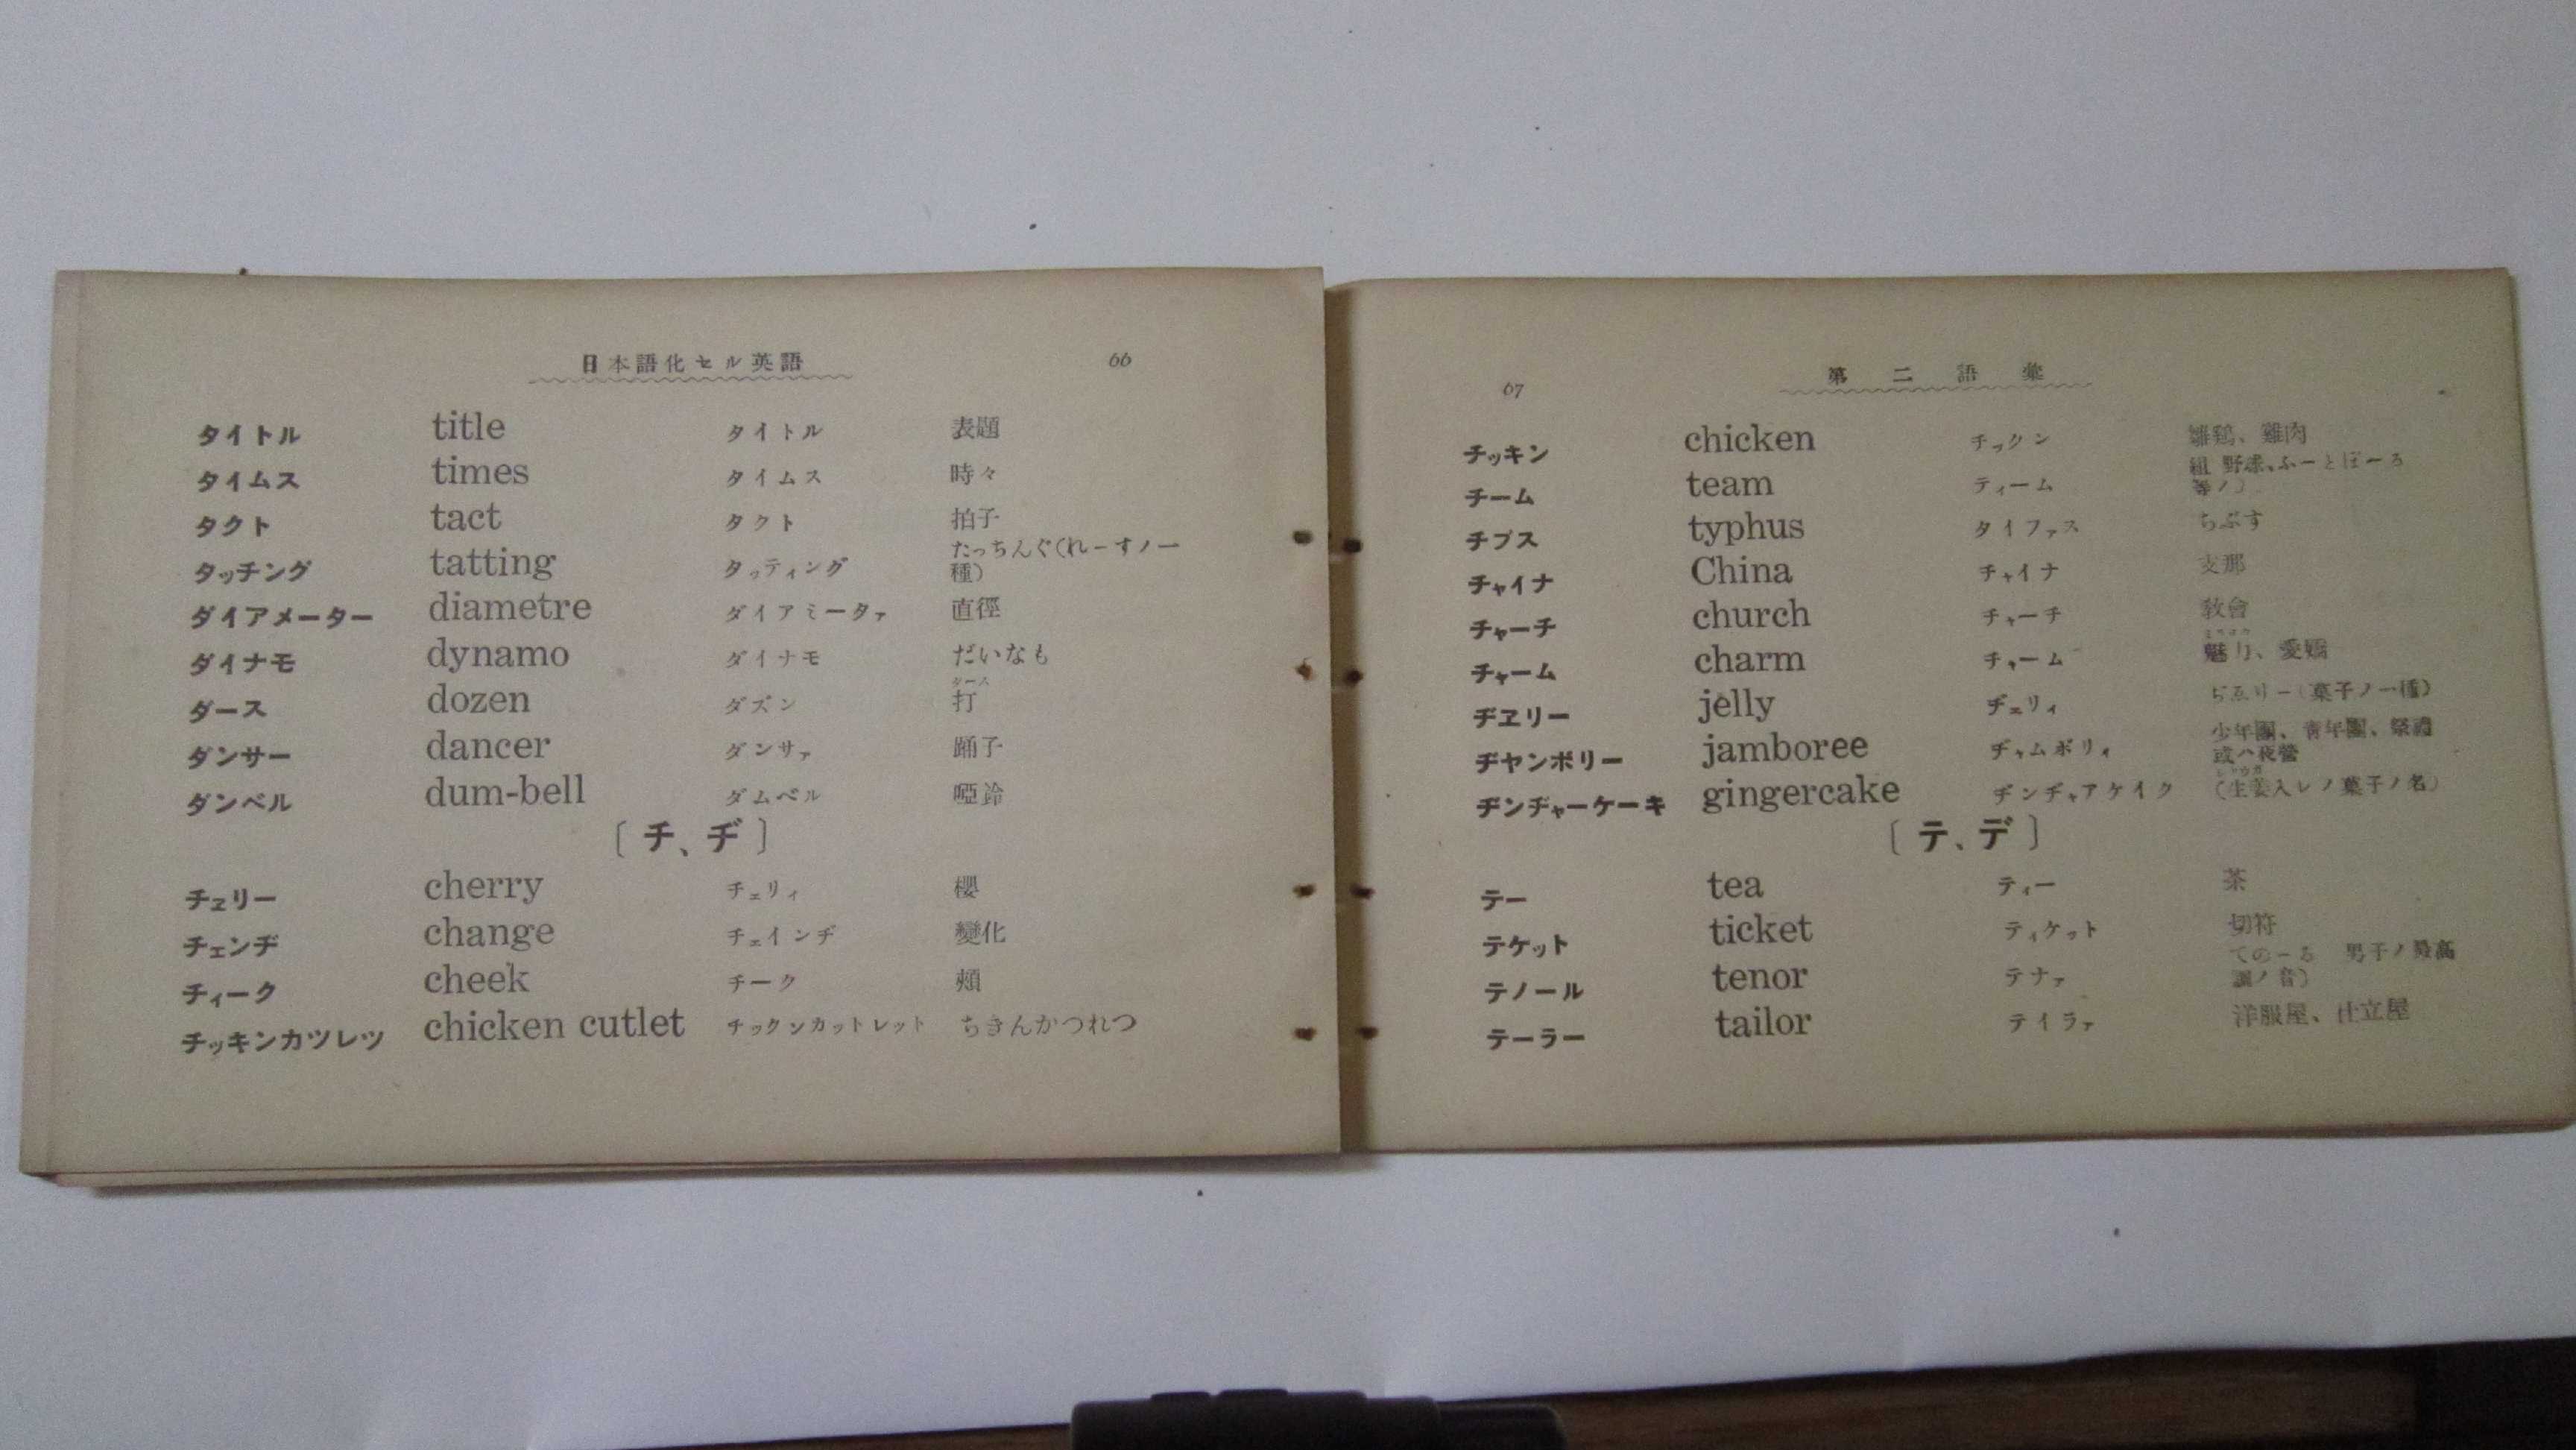 日本語化セル英語 66
タイトル title タイトル 表題
タイムス times タイムス 時々
タクト tact タクト 拍子
タッチング tatting タッティング たっちんぐ(れーすノ一
種)
ダイアメーター diametre ダイアミータァ 直徑
ダイナモ dynamo ダイナモ だいなも
ダース dozen ダズン 打
ダース
ダンサー dancer ダンサァ 踊子
ダンベル dum-bell ダムベル 啞鈴
〔チ、ヂ〕
チェリー cherry チェリィ 櫻
チェンヂ change チェインヂ 變化
チィーク cheek チーク 頰
チッキンカツレツ chicken cutlet チックンカットレット ちきんかつれつ
67 第二語彙
チッキン chicken チックン 雛鷄、雞肉
チーム team ティーム 組 野球、ふーとぼーる
等ノ)
チブス typhus タイファス ちぶす
チャイナ China チャイナ 支那
チャーチ church チャーチ 敎會
チャーム charm チャーム 魅力、愛嬌
ヂヱリー jelly ヂェリィ ぢゑりー(菓子ノ一種)
ヂヤンボリー jamboree ヂャムボリィ 少年團、靑年團、祭禮
或ハ夜營
ヂンヂャーケーキ gingercake ヂンヂャアケイク (生姜入レノ菓子ノ名)
〔テ、デ〕
テー tea ティー 茶
テケット ticket ティケット 切符
テノール tenor テナァ てのーる 男子ノ最高
調ノ音)
テーラー tailor テイラァ 洋服屋、仕立屋